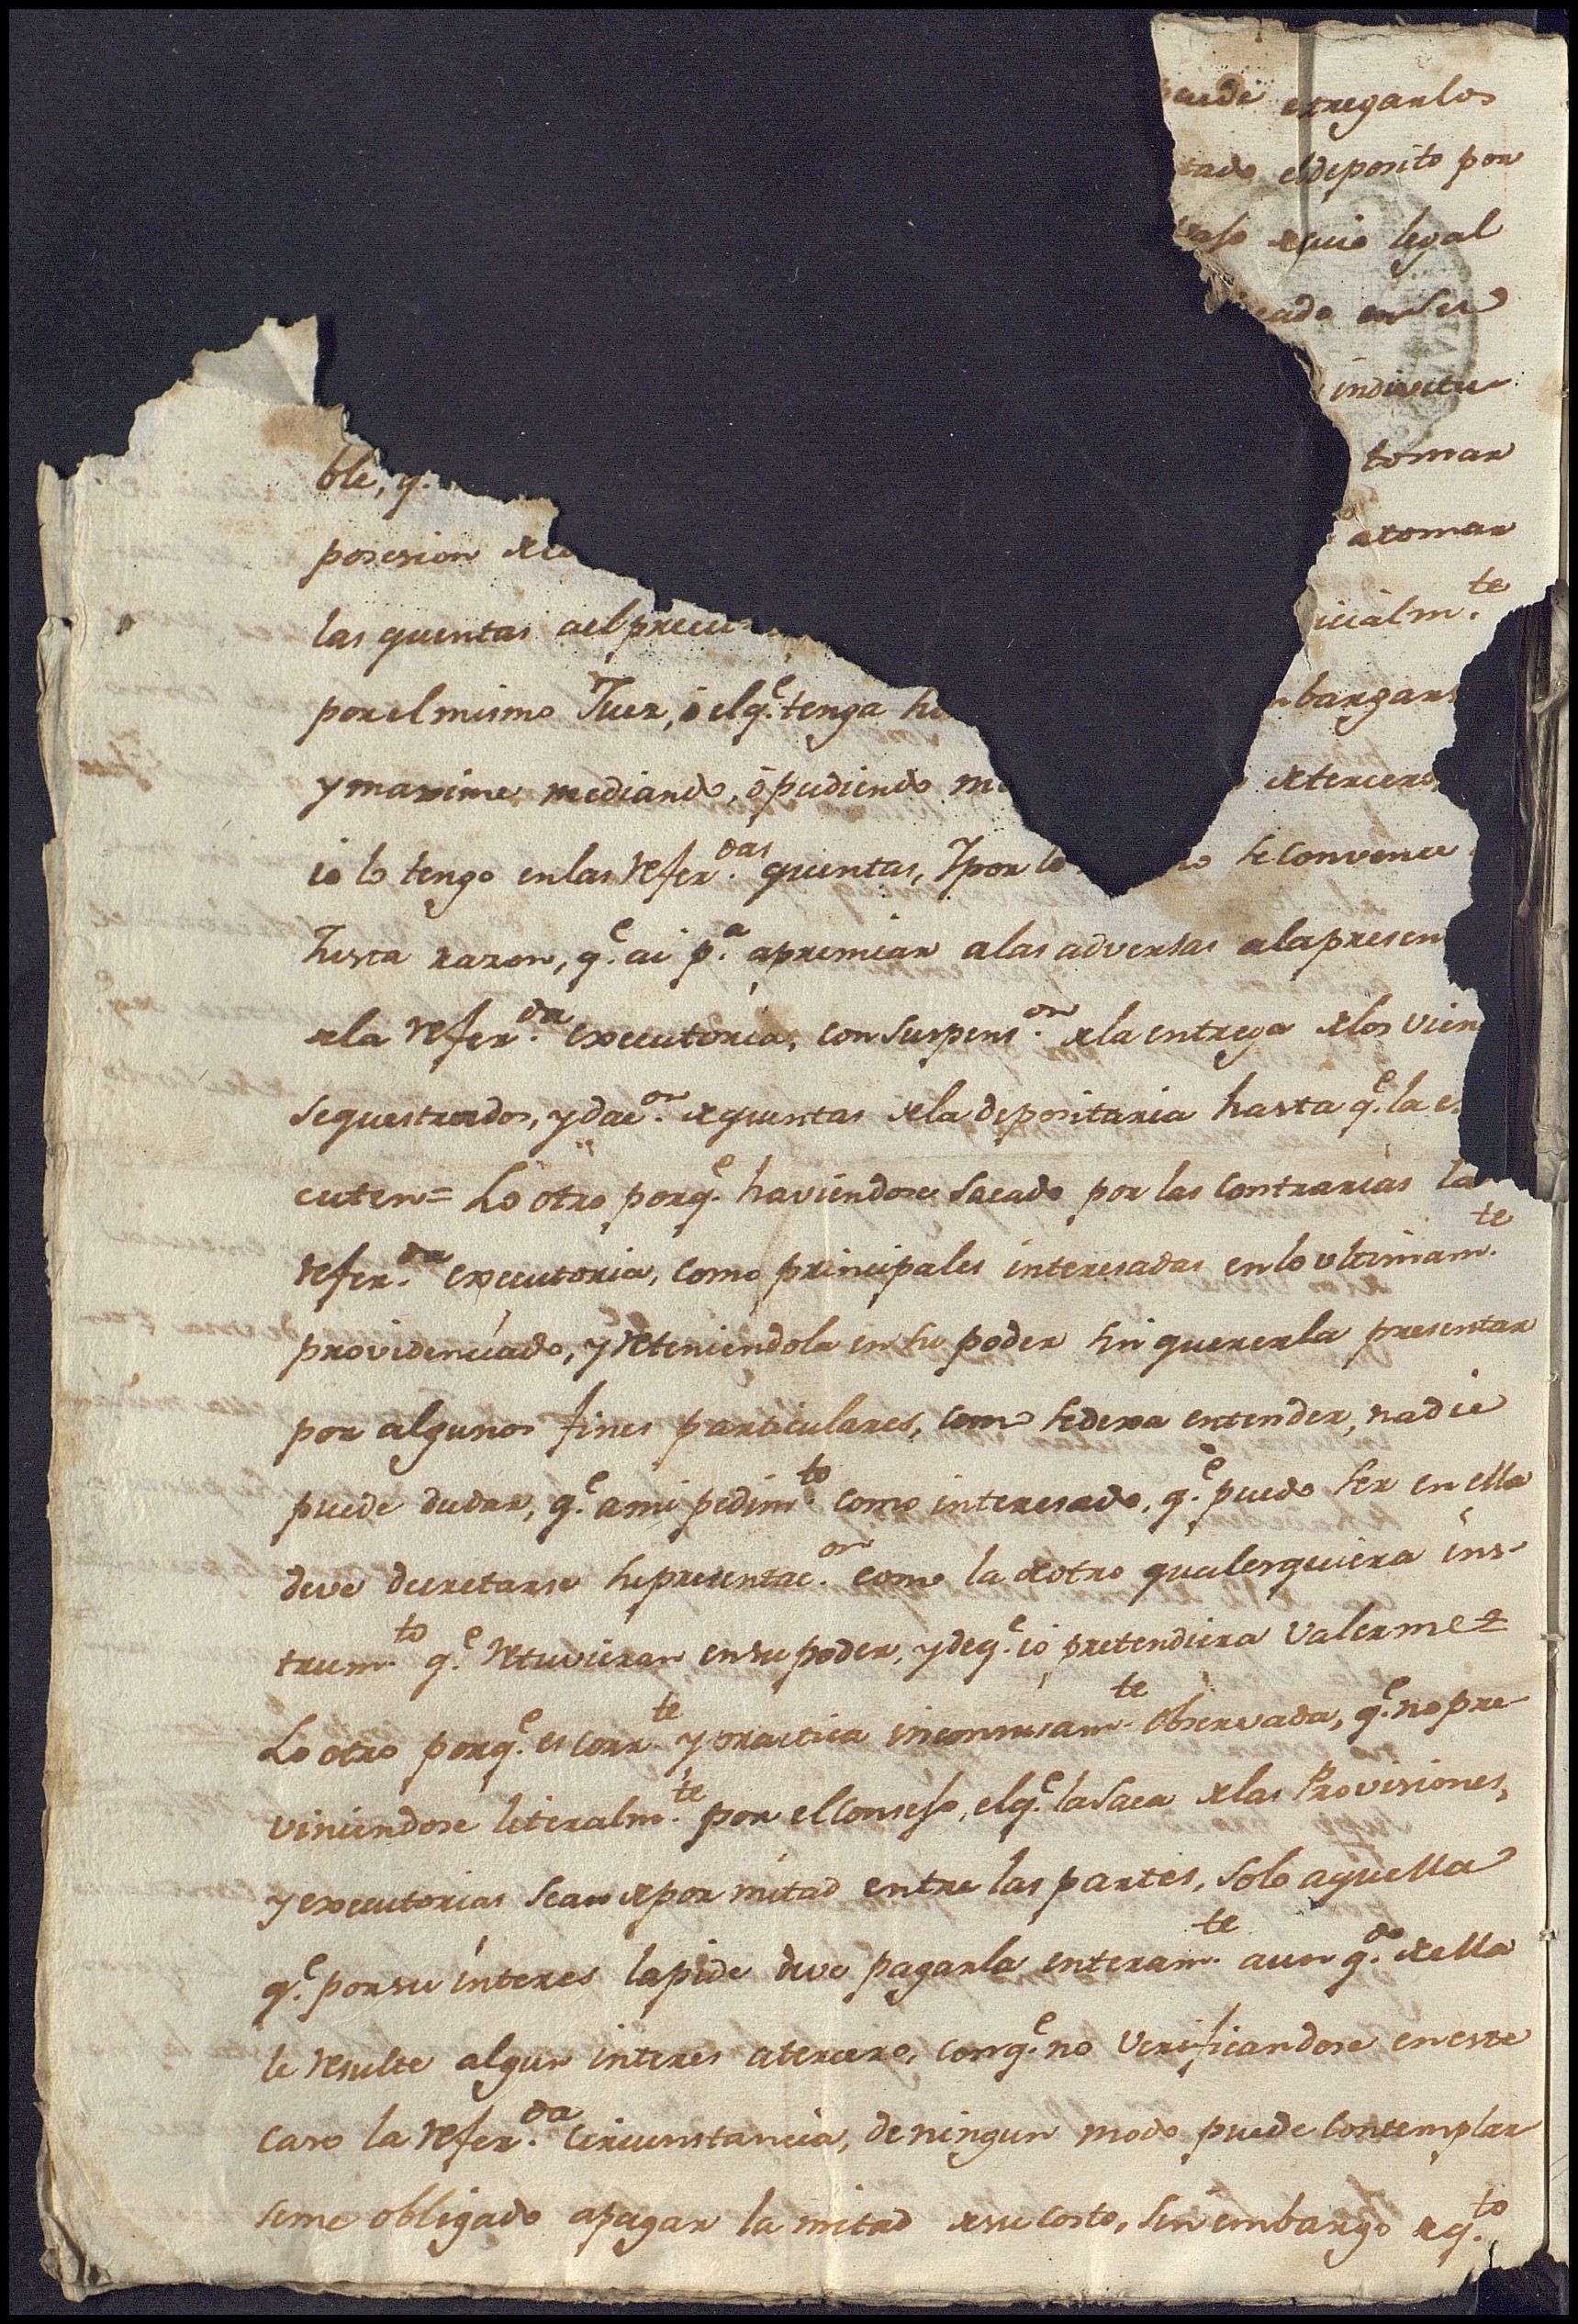 entregarlos
el deposito por
legal
en su
indivitu-
ble, q.
tomar
posesion
a tomar
las quentas
icialm.te
por el mismo Juez, ò el q.e tenga
y maxime mediando, ó pudiendo
de tercero
io lo tengo en las refer.das quentas, Y por lo
se convence
Justa razon, q.e ai p.a apremiar a las adversas a la presen
de la refer.da executoria, con suspens.on de la entrega de los vien
sequestrados, y dac.on de quentas de la depositaria hasta q.e la e
cuten= Lo otro porq.e haviendose sacado por las contrarias la
refer.da executoria, como principales interesadas en lo ultimam.te
providenciado, y reteniendola en su poder sin quererla presentar
por algunos fines particulares, como se dexa entender, nadie
puede dudar, q.e a mi pedim.to como interesado, q.e puedo ser en ella
deve decretarse su presentac.on como la de otro qualesquiera ins-
trum.to q.e retuvieran en su poder, y de q.e io pretendiera valerme=
Lo otro porq.e es corr.te y practica inconcusam.te observada, q.e no pre-
viniendose literalm.te por el Consejo, el q.e la saca de las Provisiones,
y executorias sea de por mitad entre las partes, solo aquella
q.e por su interes la pide deve pagarla enteram.te aun q.do de ella
le resulte algun interes a tercero, conq.e no verificandose en este
caso la refer.da circunstancia, de ningun modo puede contemplar
seme obligado a pagar la mitad de su costo, sin embargo de q.to